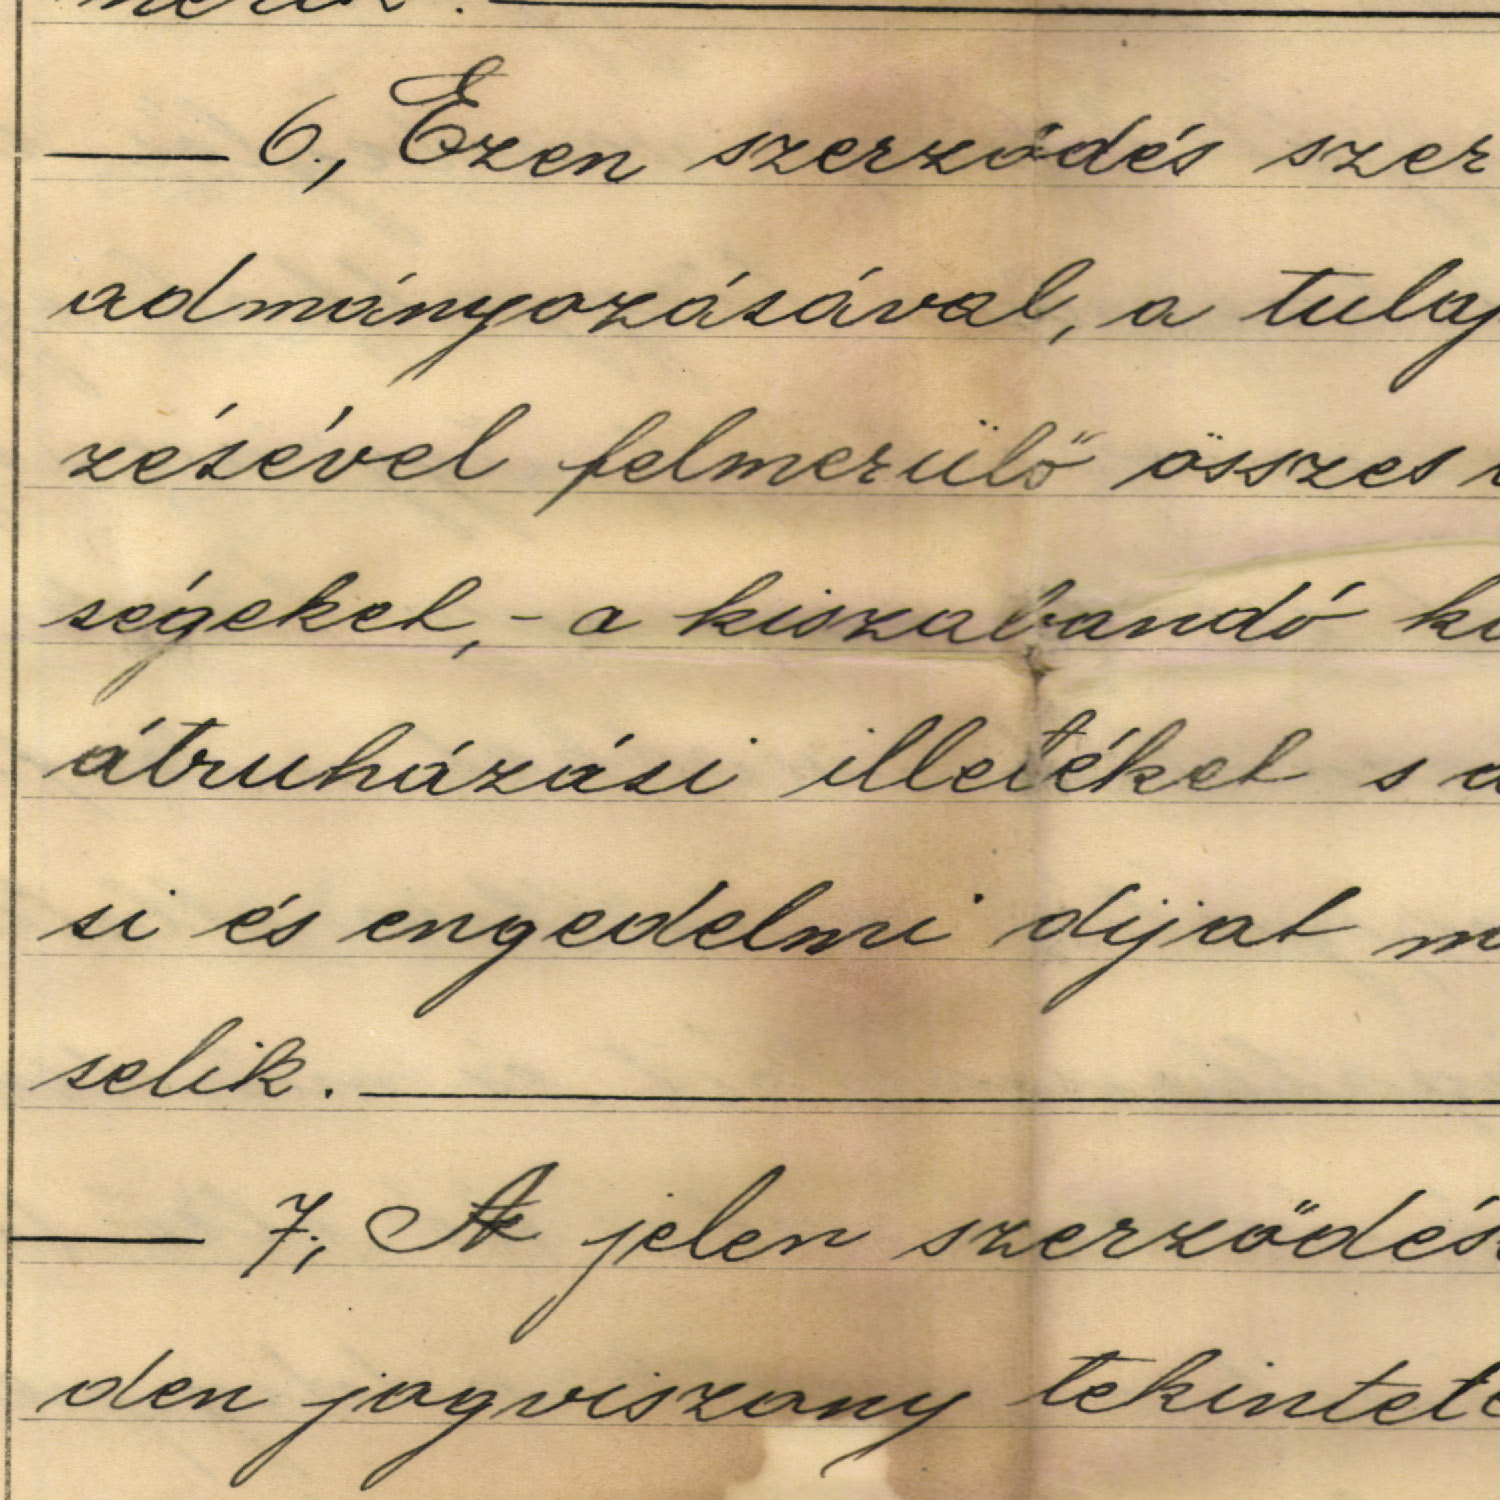 6., Ezen szerződés szer
adományozásával, a tulaj
zésével felmerülő összes
ségeket, - a kiszabandó
átruházási illetéket s a
si és engedelmi díjat
selik.
7., A jelen szerződés
den jogviszony tekinteté